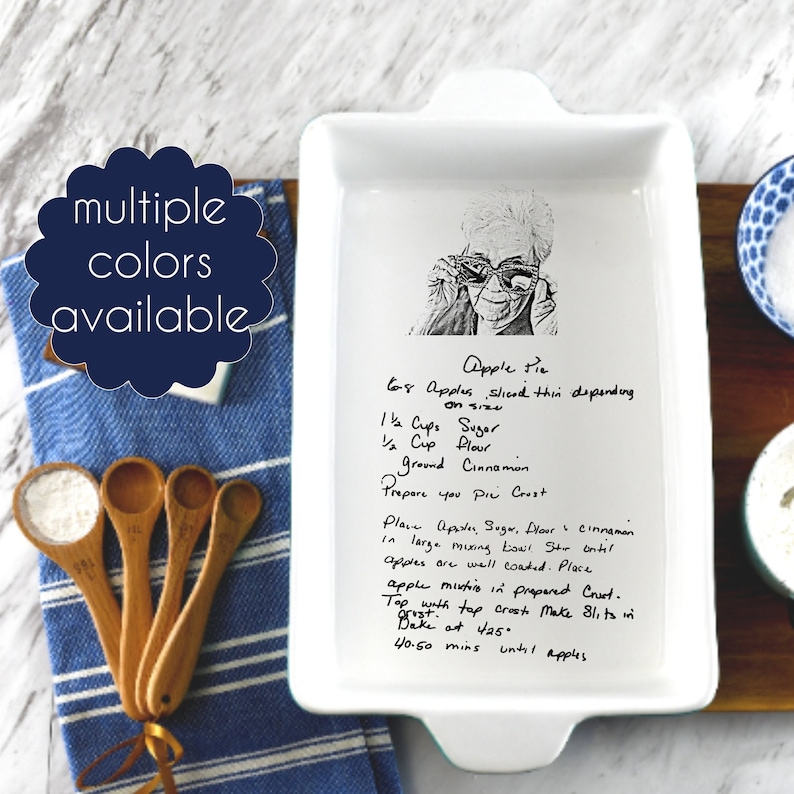 multiple
colors
available
Apple Pie
6-8 Apples sliced thin depending
on size
1 1/2 Cups Sugar
1/2 Cup flour
Ground Cinnamon
Prepare you pie Crust
Place Apples, Sugar, flour & cinnamon
in large mixing bowl. Stir until
apples are well coated. Place
apple mixture in prepared Crust.
Top with top crust Make Slits in
crust.
Bake at 425°
40-50 mins until apples